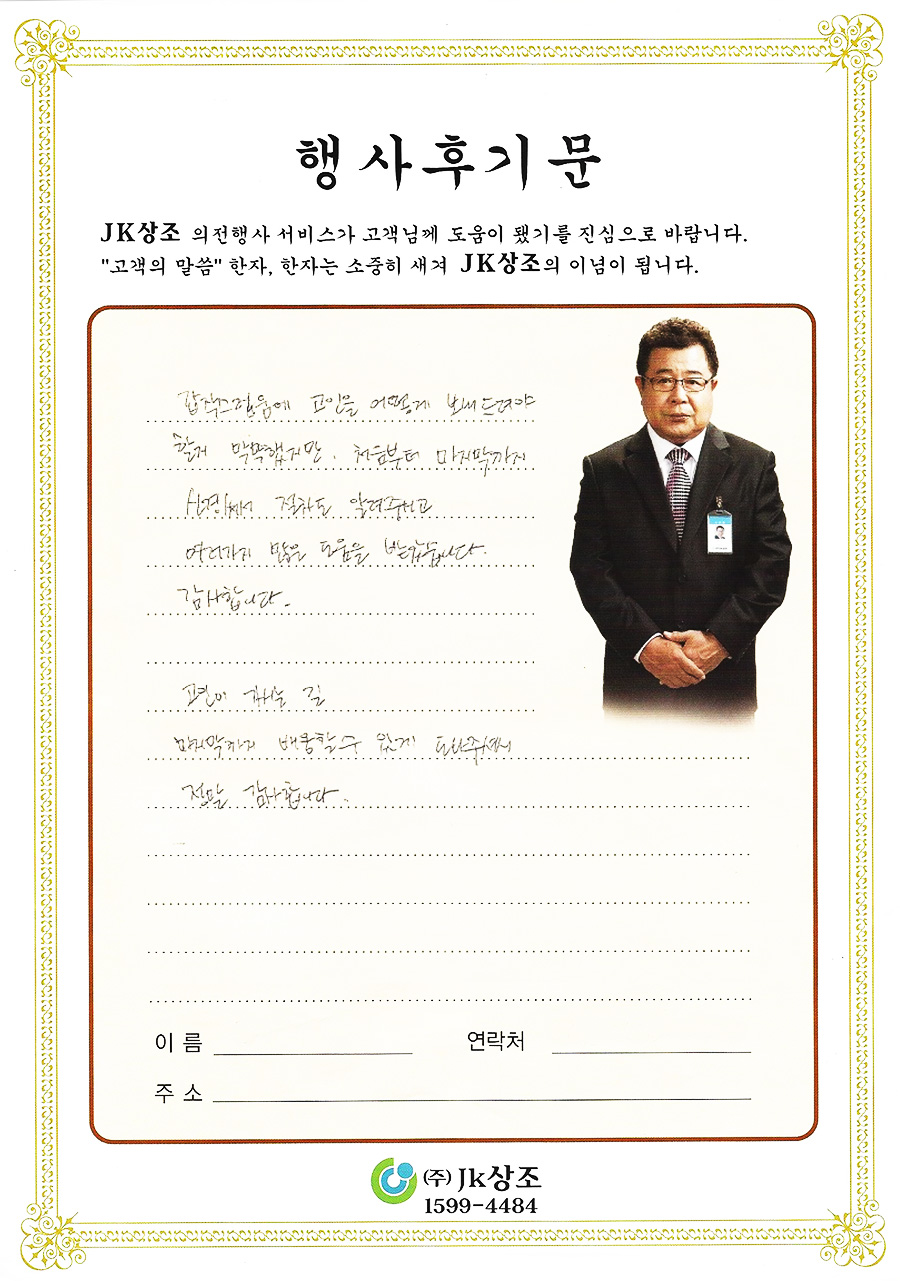 행사후기문
JK상조 의전행사 서비스가 고객님께 도움이 됐기를 진심으로 바랍니다.
"고객의 말씀" 한자, 한자는 소중히 새겨 JK상조의 이념이 됩니다.
갑작스러움에 고인을 어떻게 보내드려야
할지 막막했지만. 처음부터 마지막까지
신경써서 절차도 알려주시고
여러가지 많은 도움을 받았습니다.
감사합니다.
고인이 가시는 길
마지막까지 배웅할수 있게 도와주셔서
정말 감사합니다.
이 름
연락처
주 소
(주) Jk상조
1599-4484